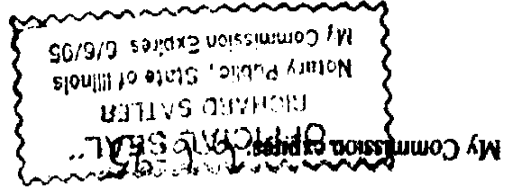 My Commission expires
"OFFICIAL SEAL"
RICHARD SATLER
Notary Public, State of Illinois
My Commission Expires 6/6/95